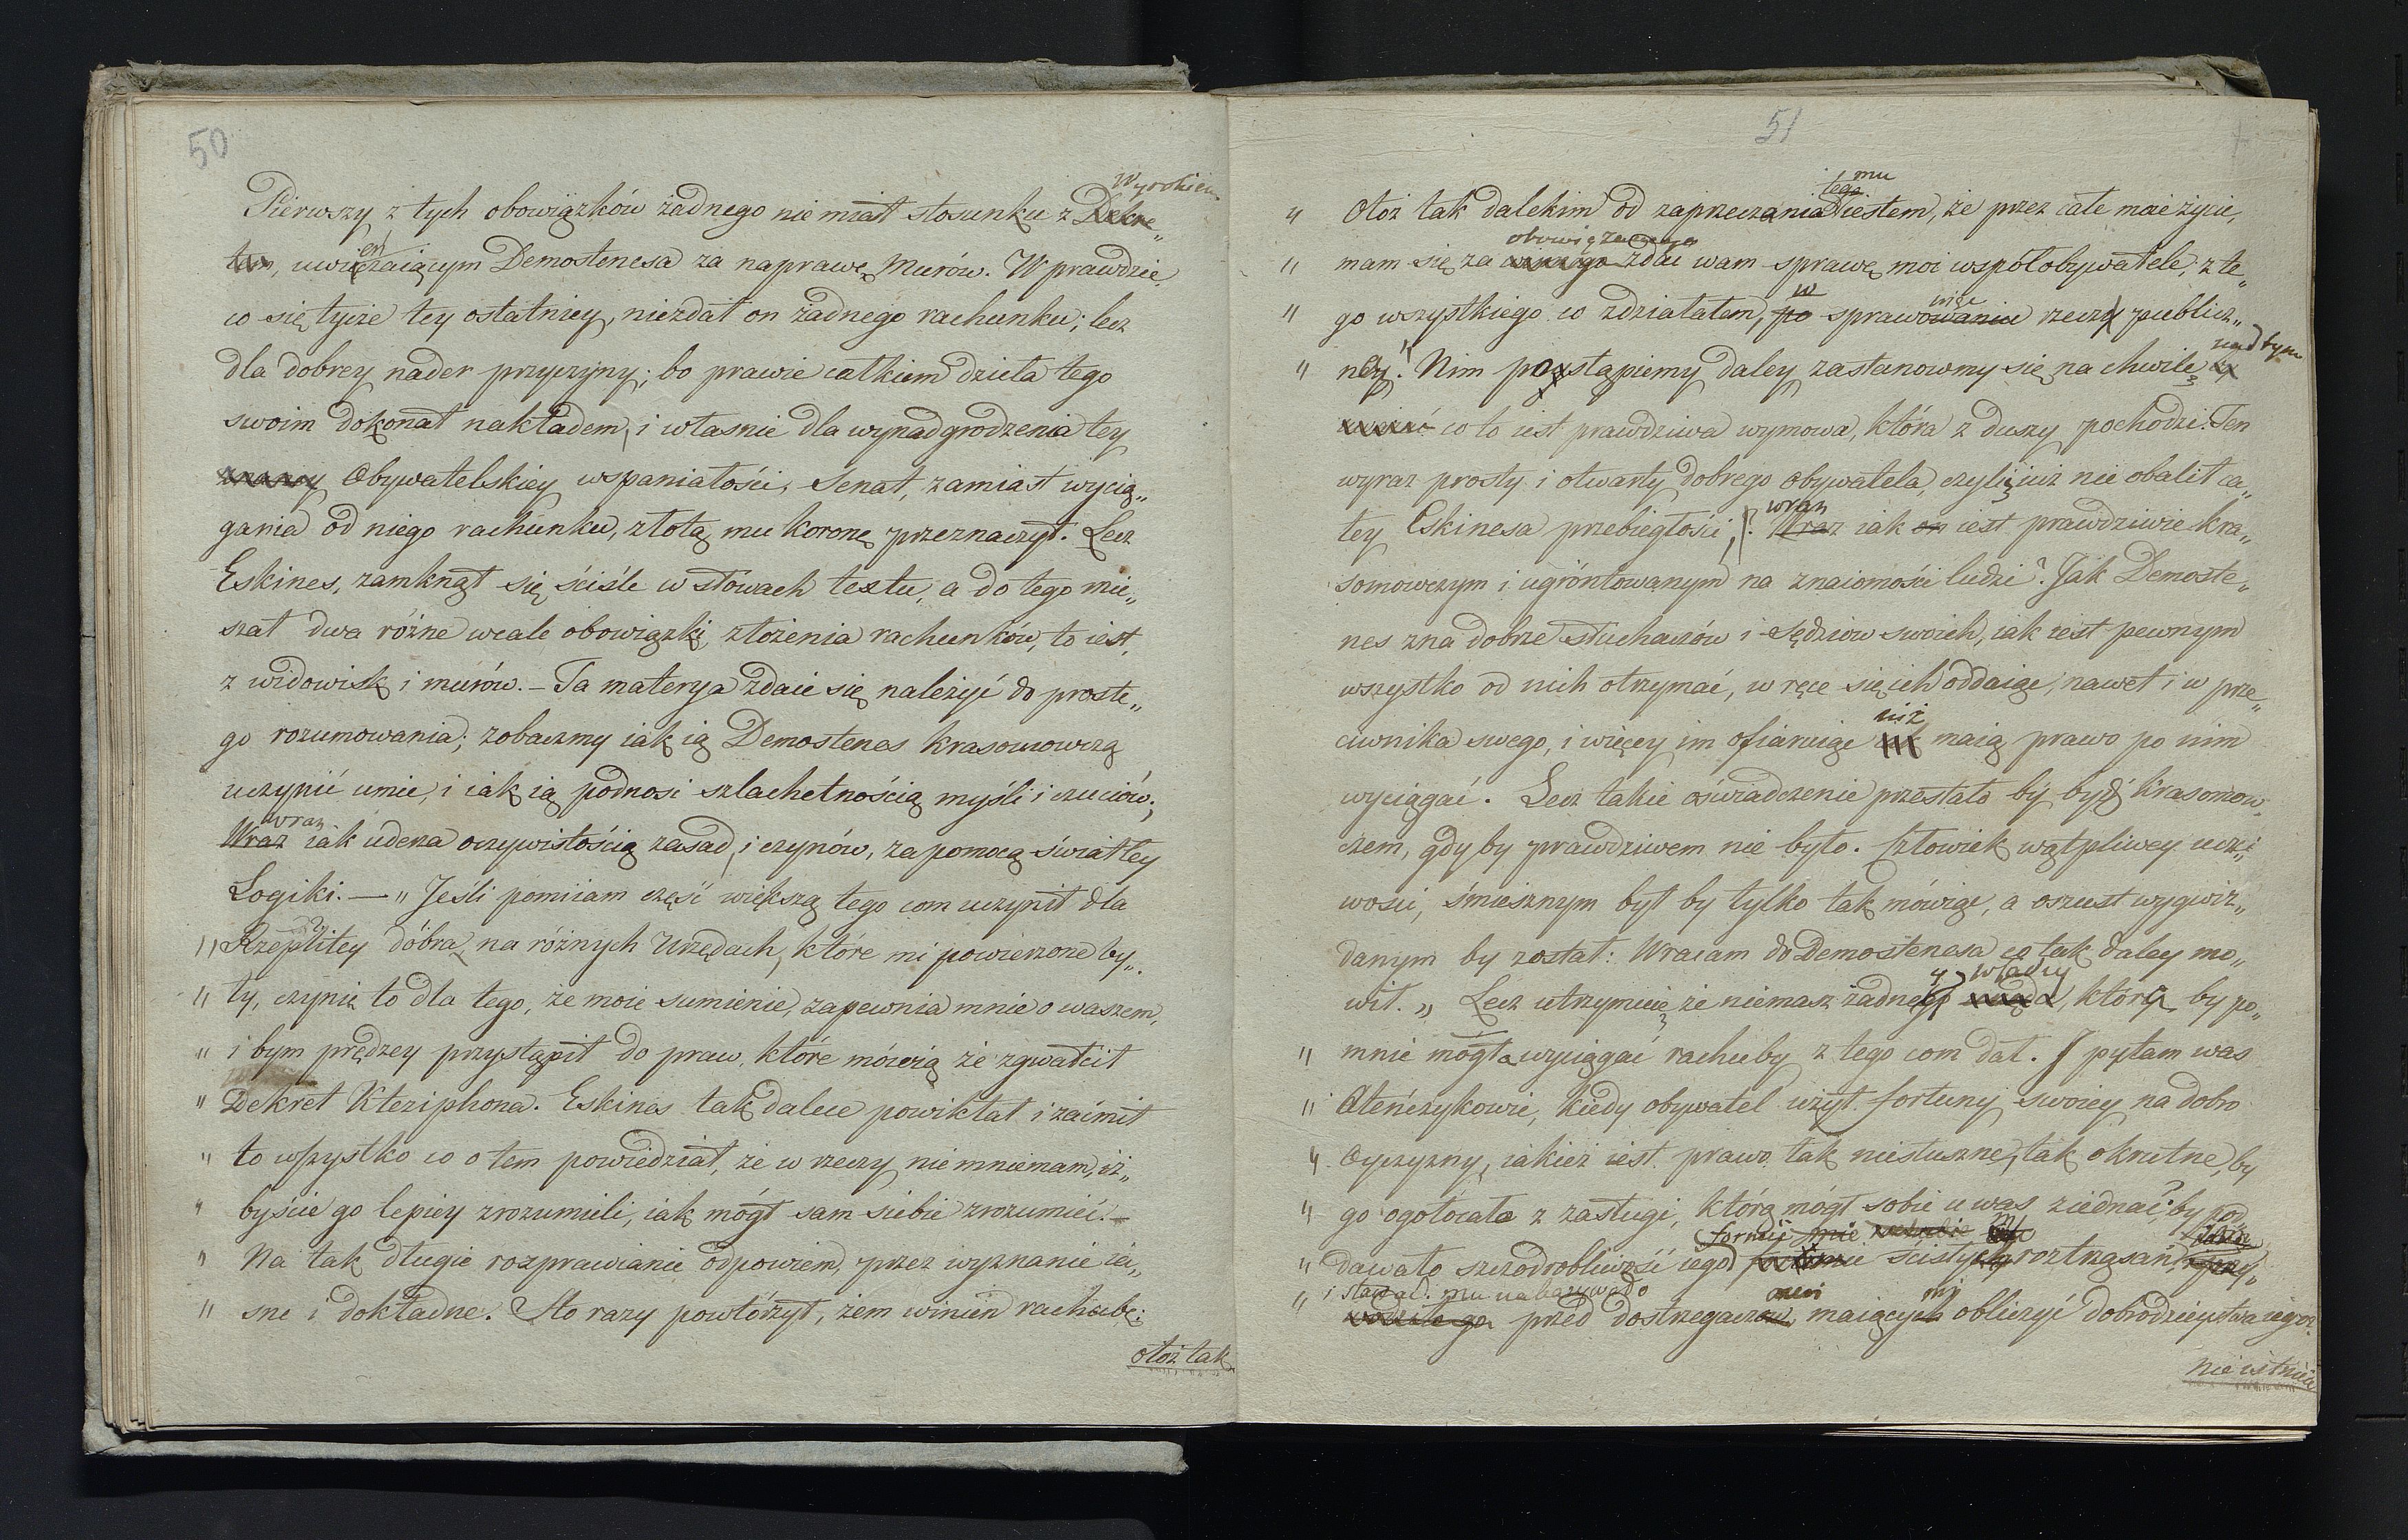 50
Wyrokiem
Pierwszy z tych obowiązków żadnego nie miał stosunku z Dekre„
tem, uwieńczaiącym Demostenesa za naprawę Murów. W prawdzie
co się tycze tey ostatniey, niezdał on żadnego rachunku; lecz
dla dobrey nader przyczyny; bo prawie całkiem dzieła tego
swoim dokonał nakładem, i własnie dla wynadgrodzenia tey
znaney Obywatelskiey wspaniałości, Senat, zamiast wycią„
gania od niego rachunku, złotą mu koronę przeznaczył. Lecz
Eskines, zamknął się ściśle w słowach textu, a do tego mie„
szał dwa różne wcale obowiązki złożenia rachunków, to iest,
z widowisk i murów. – Ta materya zdaie się należyć do proste„
go rozumowania; zobaczmy iak ią Demostenes krasomowczą
uczynić umie, i iak ią podnosi szlachetnością myśli i czuciów;
wraz
Wraz iak uderza oczywistością zasad, i czynów, za pomocą światłey
Logiki. — „ Jeśli pomiiam część większą tego com uczynił dla
„ Rzeplitey dobra, na różnych Urzędach, które mi powierzone by„
„ ły, czynię to dla tego, że moie sumienie, zapewnia mnie o waszem,
„ i bym prędzey przystąpił do praw, które mówią że zgwałcił
„ Dekret Kteziphona. Eskines tak dalece powikłał i zaćmił
„ to wszystko co o tem powiedział, że w rzeczy nie mniemam, iż„
„ byście go lepiey zrozumieli, iak mógł sam siebie zrozumieć. –
„ Na tak długie rozprawianie odpowiem, przez wyznanie ia„
„ sne i dokładne. Sto razy powtórzył, żem winien rachubę:
otoż tak
51
tego mu
„ Otoż tak dalekim od zaprzeczania iestem, że przez całe moie życie,
obowiązanego
„ mam się za winnego zdać wam sprawę moi współobywatele, z te„
w
„ go wszystkiego co zdziałałem, po sprawowaniu rzeczy publicz„
nad tym
„ ney." Nim postąpiemy daley zastanowmy się na chwilę
co to iest prawdziwa wymowa, która z duszy pochodzi. Ten
wyraz prosty i otwarty dobrego obywatela, czyliż iuż nie obalił ca„
wraz
łey Eskinesa przebiegłości; Wraz iak on iest prawdziwie kra„
somowczym i ugróntowanym na znaiomości ludzi? Jak Demoste„
nes zna dobrze słuchaczów i sędziow swoich, iak iest pewnym
wszystko od nich otrzymać, w ręce się ich oddaiąc, nawet i w prze„
niż
ciwnika swego, i więcey im ofiaruiąc maią prawo po nim
wyciągać. Lecz takie oświadczenie przestało by bydź krasomow„
czem, gdyby prawdziwem nie było. Człowiek wątpliwey uczci„
wości, śmiesznym był by tylko tak mówiąc, a oszust wygwiz„
danym by został: Wracam do Demostenesa co tak daley mo„
y władzy
wił. „ Lecz utrzymuię że niemasz żadnego, która by po
„ mnie mogła wyciągać rachuby z tego com dał. J pytam was
„ Ateńczykowie, kiedy obywatel użył fortuny swoiey na dobro
„ Oyczyzny, iakież iest prawo tak niesłuszne, tak okrutne, by
„ go ogołocało z zasługi, którą mógł sobie u was ziednać; by pod„
„ dawało szczodrobliwość iego ścisłych roztrząsań,
i stawać mu nakazywało
„ przed dostrzegaczami, maiącymi obliczyć dobrodzieystwa iego?
nie istnieie